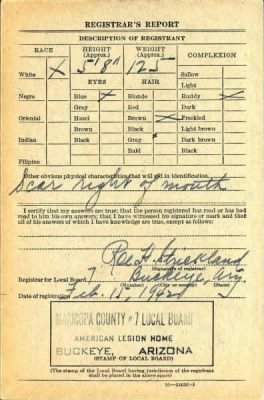 REGISTRAR'S REPORT
DESCRIPTION OF REGISTRANT
RACE HEIGHT (Approx.) WEIGHT (Approx.) COMPLEXION
White X 5'8" 125 Sallow
Light
EYES HAIR
Negro Blue X Blonde Ruddy X
Gray Red Dark
Oriental Hazel Brown X Freckled
Brown Black Light brown
Indian Black Gray Dark brown
Bald Black
Filipino
Other obvious physical characteristics that will aid in identification
Scar right of mouth
I certify that my answers are true; that the person registered has read or has had
read to him his own answers; that I have witnessed his signature or mark and that
all of his answers of which I have knowledge are true, except
H. Strickland
(Signature of registrar)
Registrar for Local Board 7 Buckeye, Ariz.
(Number) (City or county) (State)
Date of registration Feb. 15, 1942
MARICOPA COUNTY #7 LOCAL BOARD
AMERICAN LEGION HOME
BUCKEYE, ARIZONA
(STAMP OF LOCAL BOARD)
(The stamp of the Local Board having jurisdiction of the registrant
shall be placed in the above space)